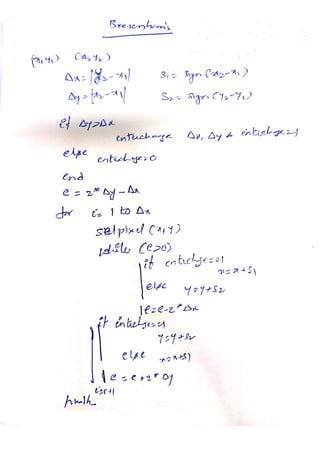 Bresenham's
(x1 y1) (x2 y2)
Δx = |y2 - x1| S1 = sign (x2-x1)
Δy = |x2 - x1| S2 = sign (y2-y1)
if Δy>Δx
interchange Δx, Δy & interchge=1
else interchge=0
end
e = 2* Δy - Δx
for i= 1 to Δx
setpixel (x,y)
while (e>0)
if interchge=1
x=x+S1
else y=y+S2
e=e-2* Δx
if interchge=1
y=y+S2
else x=x+S1
e=e+2* Δy
i=i+1
finish